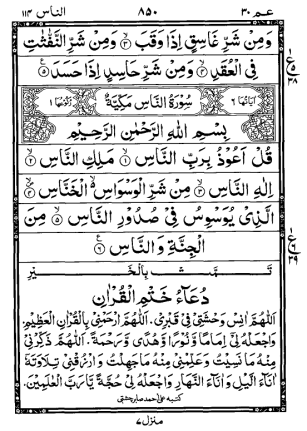 عـم ٣٠ ٨٥٠ الناس ١١٤
وَمِنْ شَرِّ غَاسِقٍ اِذَا وَقَبَ ۙ﴿٣﴾ وَمِنْ شَرِّ النَّفّٰثٰتِ
فِى الْعُقَدِ ۙ﴿٤﴾ وَمِنْ شَرِّ حَاسِدٍ اِذَا حَسَدَ ﴿٥﴾
اٰيَاتُهَا ٦ سُوْرَةُ النَّاسِ مَكِّيَّةٌ رُكُوْعُهَا ١
بِسْمِ اللّٰهِ الرَّحْمٰنِ الرَّحِيْمِ
قُلْ اَعُوْذُ بِرَبِّ النَّاسِ ۙ﴿١﴾ مَلِكِ النَّاسِ ۙ﴿٢﴾
اِلٰهِ النَّاسِ ۙ﴿٣﴾ مِنْ شَرِّ الْوَسْوَاسِ ۙ الْخَنَّاسِ ۙ﴿٤﴾
الَّذِىْ يُوَسْوِسُ فِىْ صُدُوْرِ النَّاسِ ۙ﴿٥﴾ مِنَ
الْجِنَّةِ وَالنَّاسِ ﴿٦﴾
تَمَّتْ بِالْخَيْر
دُعَآءُ خَتْمِ الْقُرْاٰنِ
اَللّٰهُمَّ اٰنِسْ وَحْشَتِىْ فِىْ قَبْرِىْ. اَللّٰهُمَّ ارْحَمْنِىْ بِالْقُرْاٰنِ الْعَظِيْمِ
وَاجْعَلْهُ لِىْ اِمَامًا وَّنُوْرًا وَّهُدًى وَّرَحْمَةً. اَللّٰهُمَّ ذَكِّرْنِىْ
مِنْهُ مَا نَسِيْتُ وَعَلِّمْنِىْ مِنْهُ مَا جَهِلْتُ وَارْزُقْنِىْ تِلَاوَتَهٗ
اٰنَآءَ الَّيْلِ وَاٰنَآءَ النَّهَارِ وَاجْعَلْهُ لِىْ حُجَّةً يَّارَبَّ الْعٰلَمِيْنَ.
منزل ٧